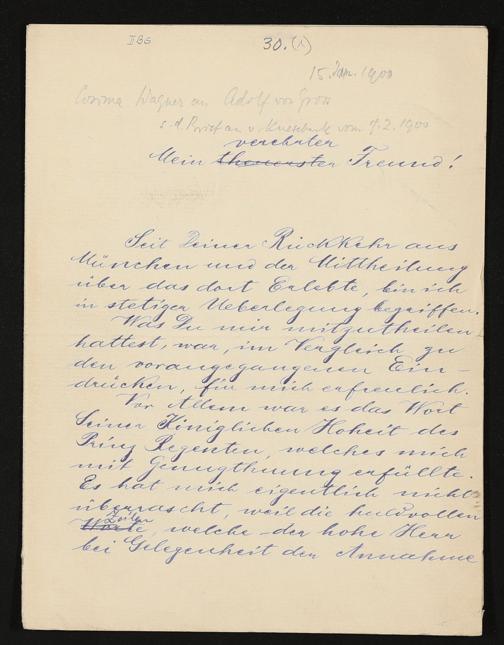 II B G
30. (1)
15. Jan. 1900
Cosima Wagner an Adolf von Gross
s. d. Brief an v. Knesebeck vom 7.2.1900
verehrter
Mein theuerster Freund!
Seit Deiner Rückkehr aus
München und der Mittheilung
über das dort Erlebte, bin ich
in stetiger Ueberlegung begriffen.
Was Du mir mitgutheilen
hattest, war, im Vergleich zu
den vorangegangenen Ein-
drücken, für mich erfreulich.
Vor Allem war es das Wort
Seiner Königlichen Hoheit des
Prinz Regenten, welches mich
mit Genugthuung erfüllte.
Es hat mich eigentlich nicht
überrascht, weil die huldvollen
Zeilen
Worte, welche der hohe Herr
bei Gelegenheit der Annahme